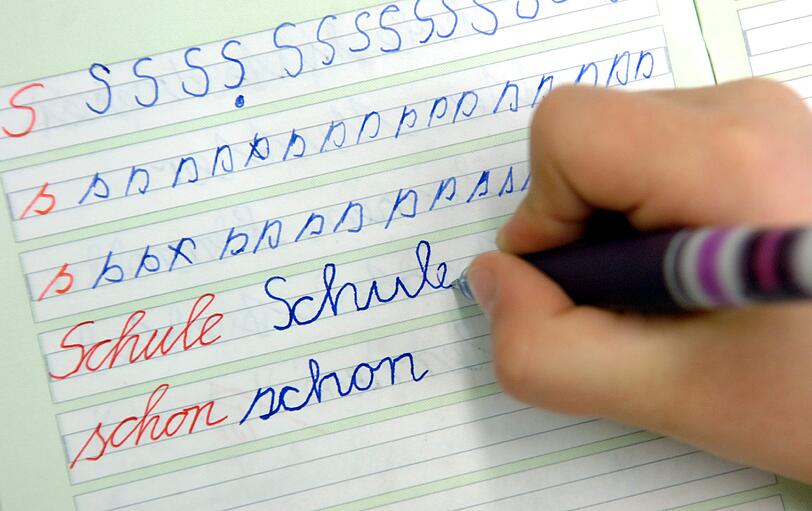 S S S S S S S S S S S S S S S
s s s s s s s s s s s s s s s s s
s s s s s s s s s s s s s
Schule Schule
schon schon